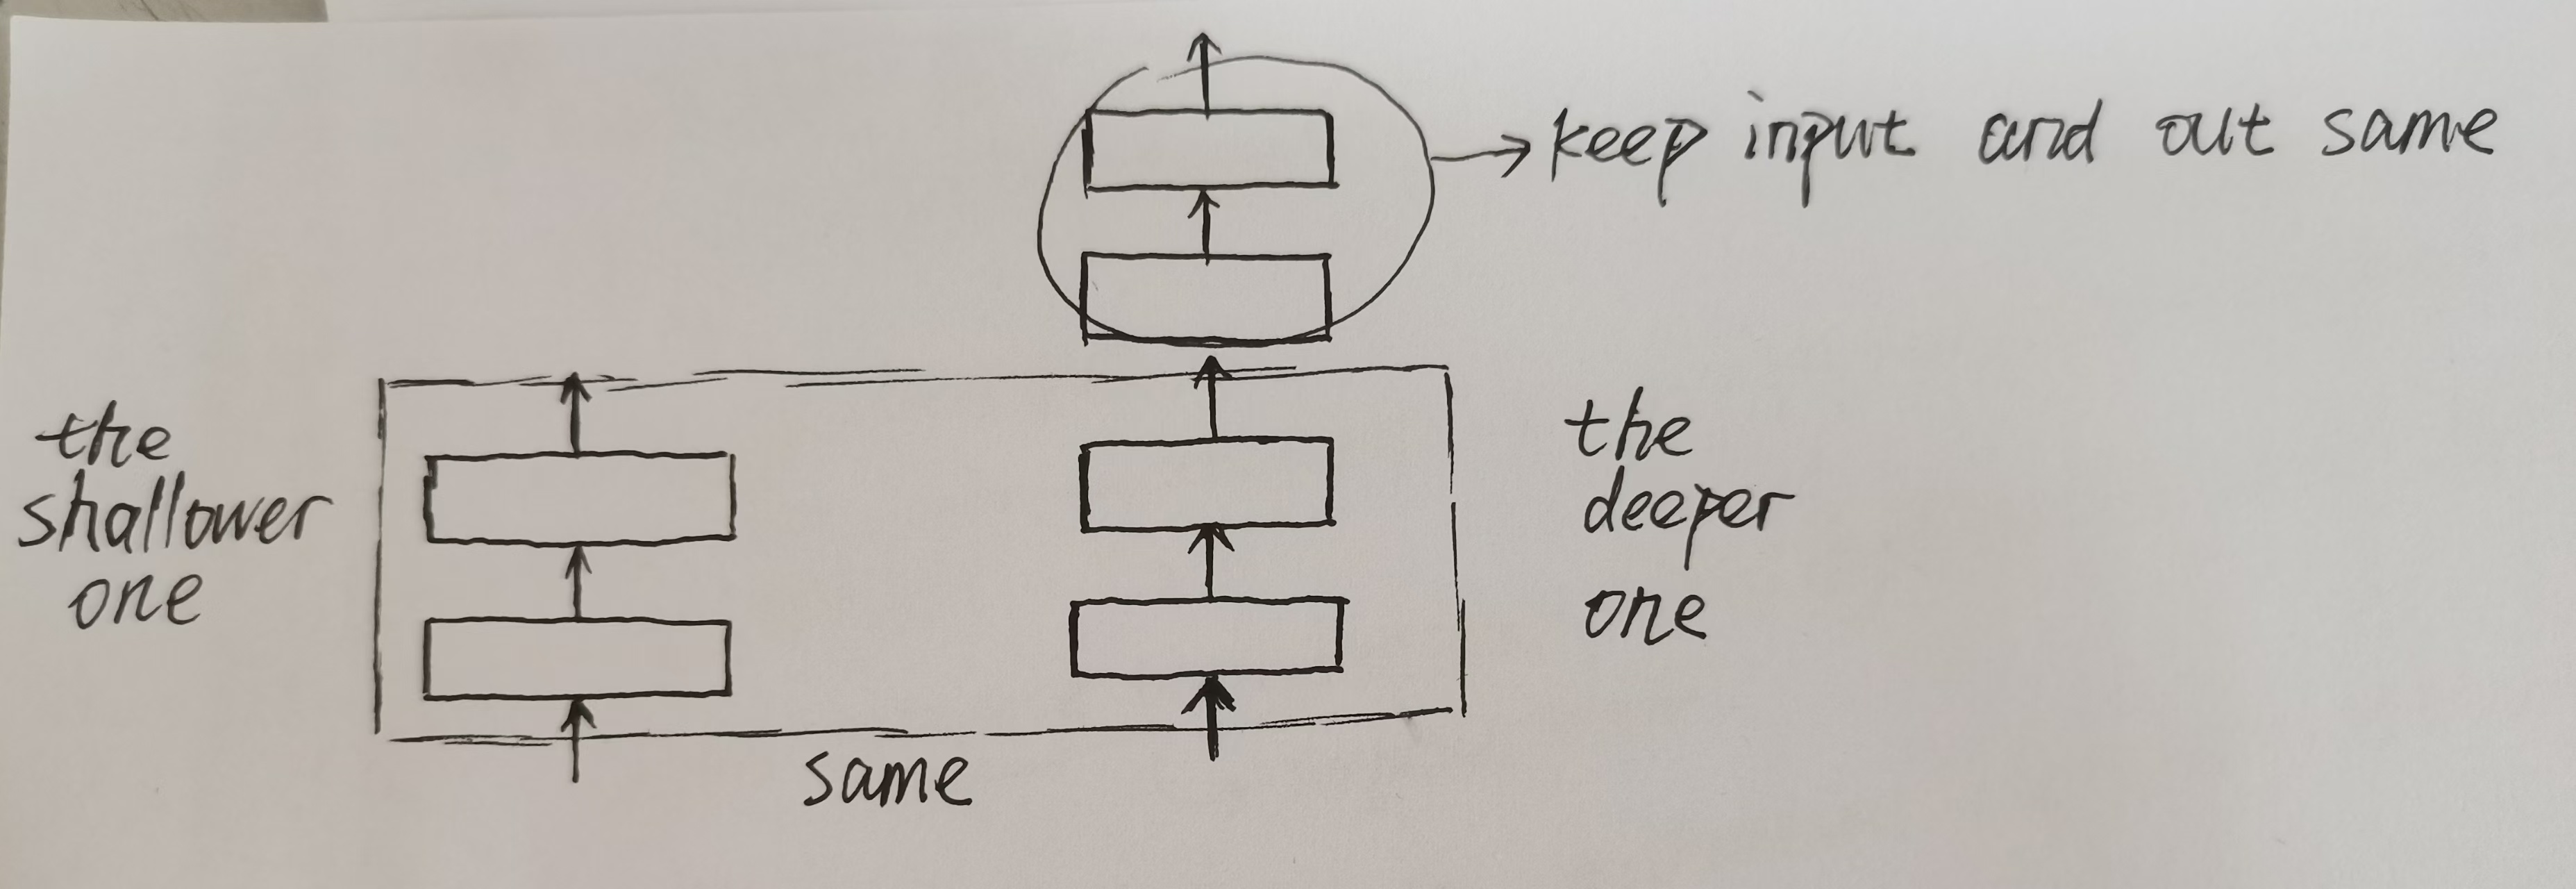 keep input and out same
the
shallower
one
the
deeper
one
same